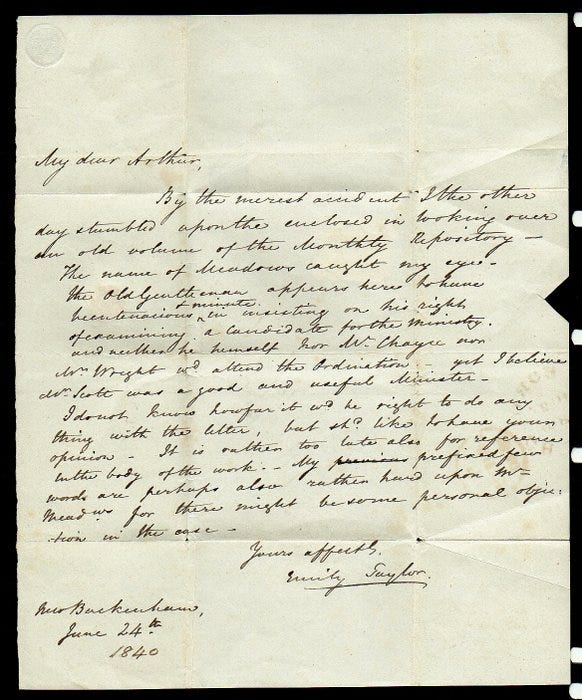 My dear Arthur,
By the merest accident I the other
day stumbled upon the enclosed in looking over
an old volume of the Monthly Repository —
The name of Meadows caught my eye —
The Old Gentleman appears here to have
been tenacious & minute in insisting on his right
of examining a candidate for the ministry.
and neither he himself nor Mr. nor
Mr. Wright wd attend the Ordination — yet I believe
Mr. Scott was a good and useful Minister —
I do not know how far it wd be right to do any
thing with the letter, but shd. like to have your
opinion — It is rather too late also for reference
in the body of the work. — My previous prefixed few
words are perhaps also rather hard upon Mr
Meadws for there might be some personal objec:
:tion in the case —
Yours affectly.
Emily Taylor.
New Buckenham,
June 24th
1840